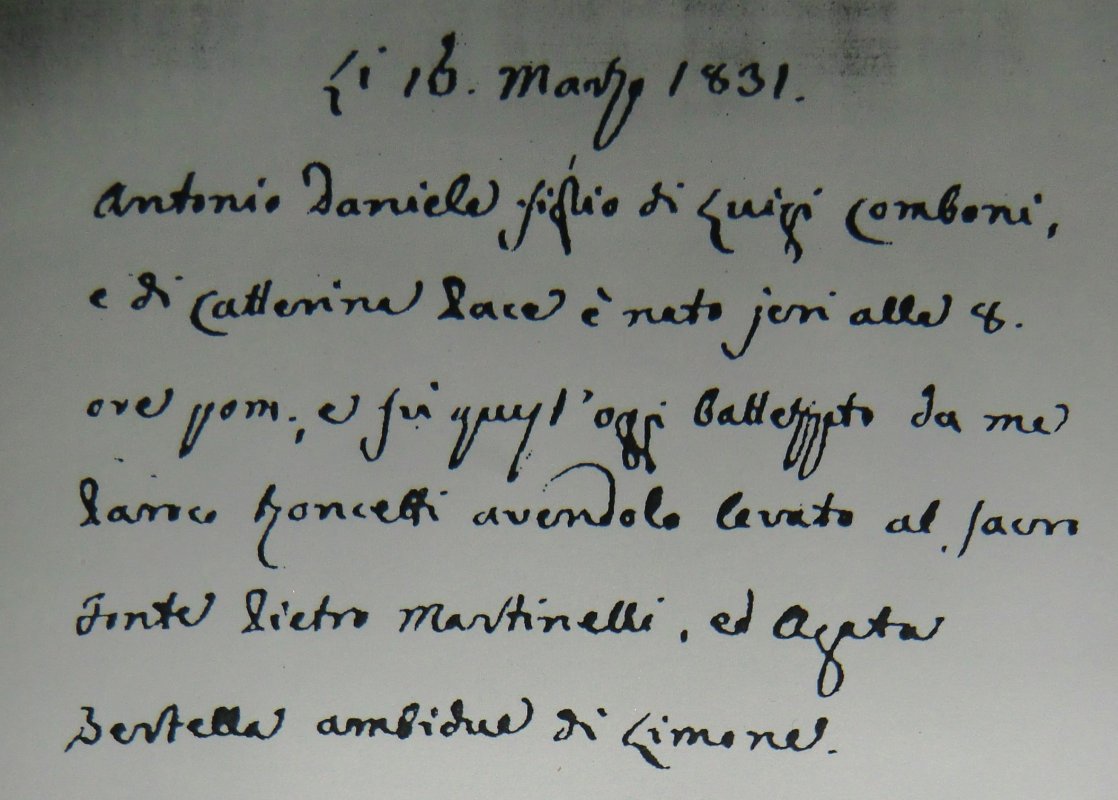 Li 16. Marzo 1831.
Antonio Daniele figlio di Luigi Comboni,
e di Catterina Pace è nato jeri alle 8.
ore pom., e fù quest'oggi battezzato da me
Paroco Roncetti avendolo levato al sacro
Fonte Pietro Martinelli, ed Agata
Bertella ambidue di Limone.